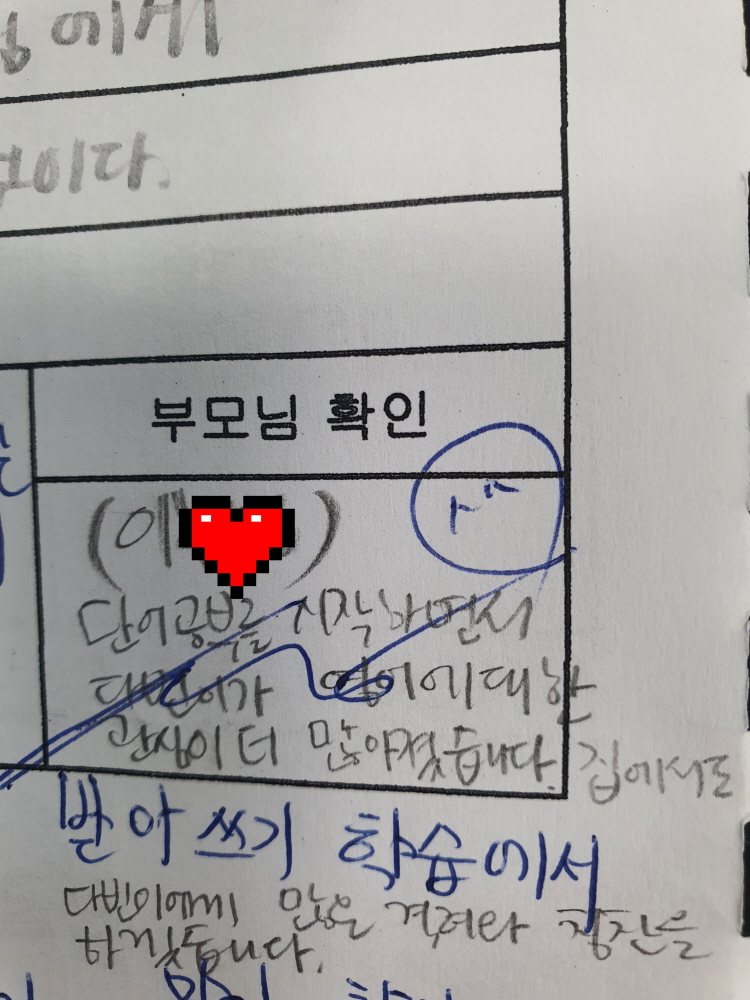 에게
이다.
부모님 확인
(예 )
단어공부를 시작하면서
대민이가 영어에 대한
관심이 더 많아졌습니다. 집에서도
받아쓰기 학습에서
대민이에게 많은 격려와 칭찬을
하겠습니다.